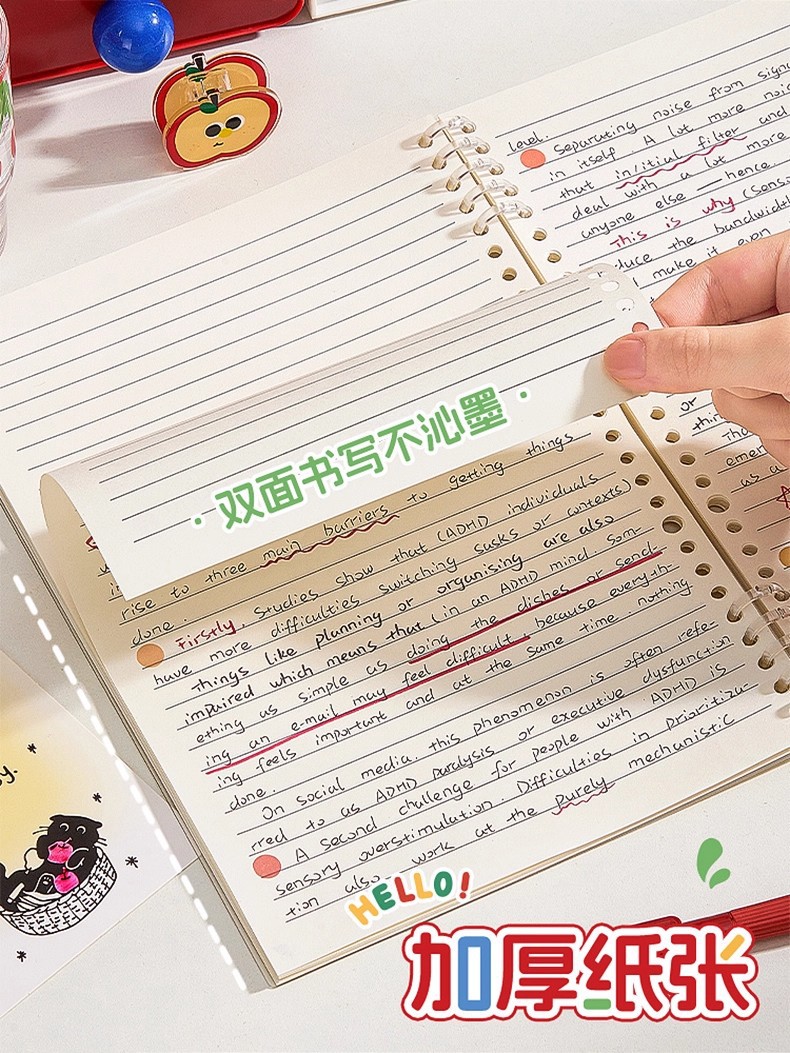 level.
Separating noise from
in itself. A lot more
that in/itial filter and
deal with a lot more
anyone else — hence.
This is why
duce the bandwidth
make it even
or
as a
·双面书写不沁墨·
rise to three main barriers to getting things
done. Studies show that (ADHD individuals
Firstly, have more difficulties switching tasks or contexts)
things like planning or organising are also
impaired which means that (in an ADHD mind. Som-
ething as simple as doing the dishes or send-
ing an e-mail may feel difficult because everyth-
ing feels important and at the same time nothing
done.
On social media, this phenomenon is often refe-
rred to as ADHD paralysis or executive dysfunction
A second challenge for people with ADHD is
sensory overstimulation. Difficulties in prioritiza-
tion also work at the purely mechanistic
HELLO!
加厚纸张